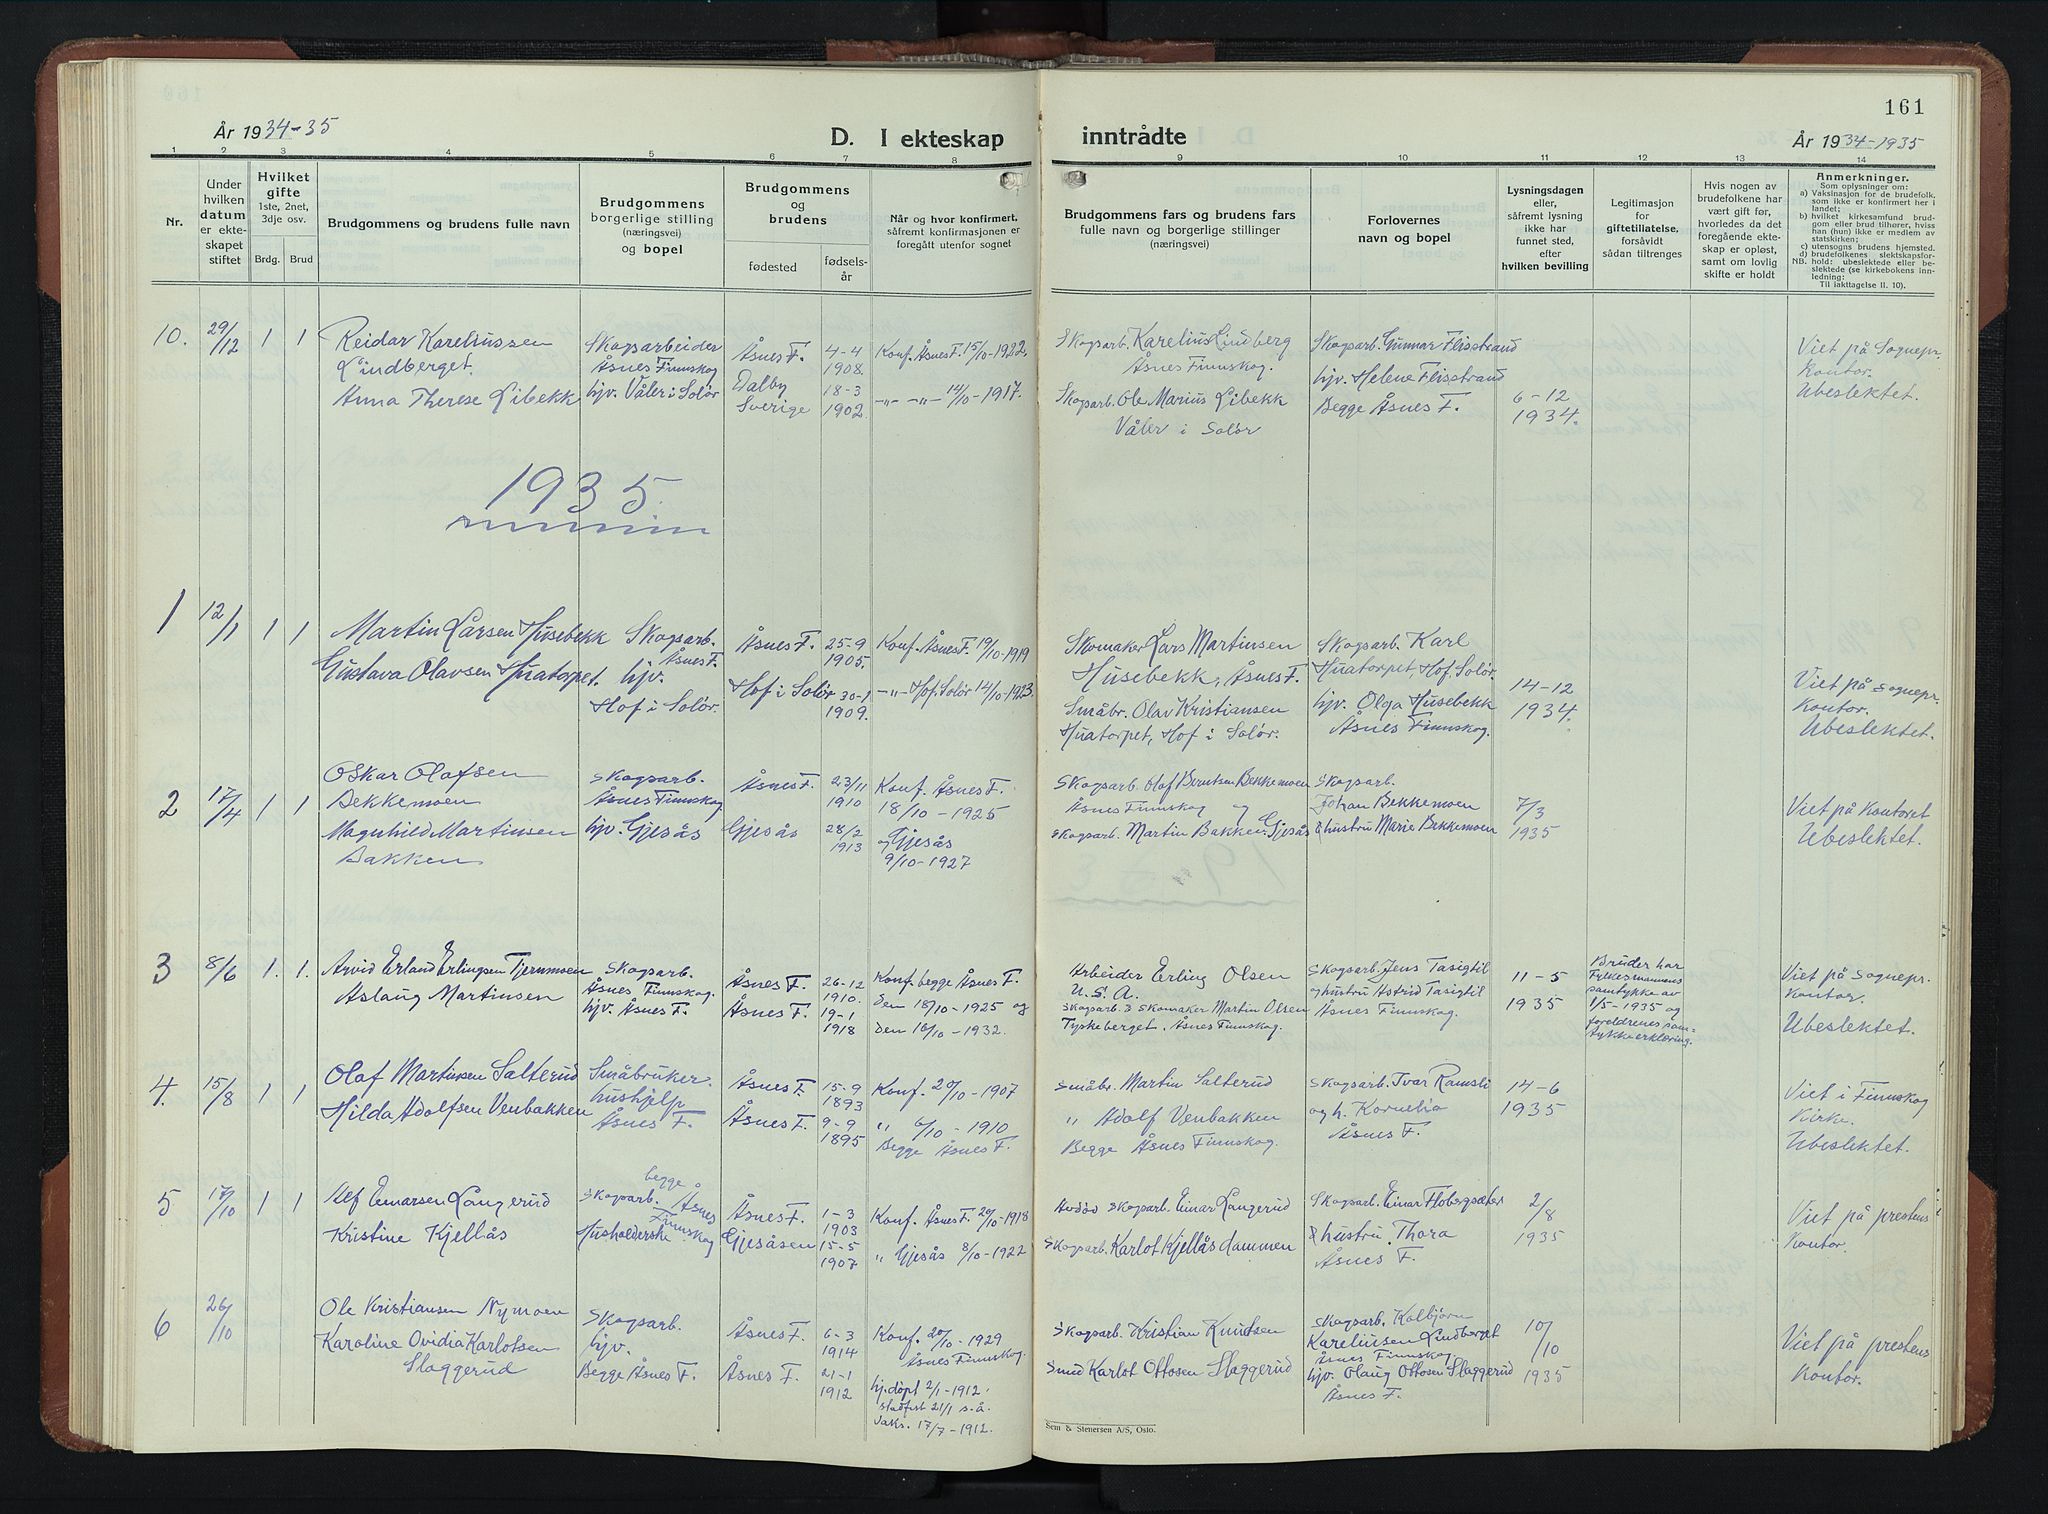 161
År 1934-35
D. I ekteskap
inntrådte
År 1934-1935
1 2 3 4 5 6 7 8 9 10 11 12 13 14
Nr.
Under hvilken datum er ekteskapet stiftet
Hvilket gifte
1ste, 2net, 3dje osv.
Brdg. Brud
Brudgommens og brudens fulle navn
Brudgommens borgerlige stilling (næringsvei) og bopel
Brudgommens og brudens
fødested
fødselsår
Når og hvor konfirmert, såfremt konfirmasjonen er foregått utenfor sognet
Brudgommens fars og brudens fars fulle navn og borgerlige stillinger (næringsvei)
Forlovernes navn og bopel
Lysningsdagen eller, såfremt lysning ikke har funnet sted, efter hvilken bevilling
Legitimasjon for giftetillatelse, forsåvidt sådan tiltrenges
Hvis nogen av brudefolkene har vært gift før, hvorledes da det foregående ekteskap er opløst, samt om lovlig skifte er holdt
Anmerkninger.
Som oplysninger om:
a) Vaksinasjon for de brudefolk, som ikke er konfirmert her i landet;
b) hvilket kirkesamfund brudgom eller brud tilhører, hviss han (hun) ikke er medlem av statskirken;
c) utensogns brudens hjemsted.
d) brudefolkenes slektskapsforhold: ubeslektede eller beslektede (se kirkebokens innledning:
NB.
Til iakttagelse II. 10).
10. 29/12 1 1
Reidar Kareliussen
Lindberget.
Anna Therese Libekk
Skogsarbeider
Åsnes Finnskog
hjv. Våler i Solør
Åsnes F.
Dalby
Sverige
4-4
1908.
18-3
1902.
Konf. Åsnes F. 15/10-1922.
-"- -"- 14/10-1917.
Skogsarb. Karelius Lindberg
Åsnes Finnskog.
Skogsarb. Ole Marius Libekk
Våler i Solør
Skogsarb. Gunnar Flisstrand
hjv. Helene Flisstrand
Begge Åsnes F.
6-12
1934.
Viet på Sognepr.
Kontor.
Ubeslektet.
1935.
1 12/1 1 1
Martin Larsen Husebekk
Gustava Olavsen Huatorpet.
Skogsarb.
Åsnes F.
hjv.
Hof i Solør.
Åsnes F.
Hof i Solør
25-9
1905.
30-1
1909.
Konf. Åsnes F. 19/10-1919
-"- Hof. Solør 14/10-1923.
Skomaker Lars Martinsen
Husebekk, Åsnes F.
Småbr. Olav Kristiansen
Huatorpet, Hof i Solør.
Skogsarb. Karl
Huatorpet, Hof. Solør.
hjv. Olga Husebekk
Åsnes Finnskog.
14-12
1934.
Viet på Sognepr.
Kontor.
Ubeslektet.
2 17/4 1 1
Oskar Olafsen
Bekkemoen
Magnhild Martinsen
Bakken
Skogsarb.
Åsnes Finnskog
hjv. Gjesås
Åsnes F.
Gjesås
23/11
1910
28/2
1913
Konf. Åsnes F.
18/10-1925
og Gjesås
9/10-1927
Skogsarb. Olaf Berntsen Bekkemoen
Åsnes Finnskog og
Skogsarb. Martin Bakken, Gjesås
Skogsarb.
Johan Bekkemoen
& hustru Marie Bekkemoen
7/3
1935
Viet på Kontoret
Ubeslektet.
3 8/6 1. 1.
Arvid Erland Erlingsen Tjernmoen
Aslaug Martinsen
Skogsarb.
Åsnes Finnskog.
hjv. Åsnes F.
Åsnes F.
Åsnes F.
26-12
1910.
19-1
1918
Konf. begge Åsnes F.
den 18/10-1925 og
den 16/10-1932.
Arbeider Erling Olsen
U.S.A.
Skogsarb. & Skomaker Martin Olsen
Tyskeberget, Åsnes Finnskog.
Skogsarb. Jens Tasigtil
og hustru Astrid Tasigtil
Åsnes Finnskog.
11-5
1935
Bruder har
Fylkesmannens
samtykke av
1/5-1935 og
foreldrenes sam-
tykkeerklæring.
Viet på Sognepr.
Kontor.
Ubeslektet.
4. 15/8 1 1
Olaf Martinsen Salterud
Hilda Adolfsen Venbakken
Småbruker.
hushjelp
Åsnes F.
Åsnes F.
Åsnes F.
15-9
1893
9-9
1895
Konf. 20/10-1907
" 6/10-1910
Begge Åsnes F.
Småbr. Martin Salterud
" Adolf Venbakken
Begge Åsnes Finnskog.
Skogsarb. Ivar Ramsli
og h. Kornelia
Åsnes F.
14-6
1935
Viet i Finnskog
Kirke.
Ubeslektet.
5 17/10 1 1
Alf Einarsen Långerud
Kristine Kjellås
begge
Skogsarb. Åsnes
Finnskog
Husholderske
Åsnes F.
Gjesåsen
1-3
1903
15-5
1907
Konf. Åsnes F. 20/10-1918
" Gjesås 8/10-1922
Skogsarb. Einar Långerud
Skogsarb. Karlot Kjellås dammen
Skogsarb. Einar Flobergsæter
& hustru Thora
Åsnes F.
2/8
1935
Viet på prestens
Kontor.
6 26/10
Ole Kristiansen Nymoen
Karoline Ovidia Karlotsen
Slaggerud
Skogsarb.
hjv.
Begge Åsnes F.
Åsnes F.
Åsnes F.
6-3
1914
21-1
1912
Konf. 20/10-1929
Åsnes Finnskog.
hj.døpt 2/1-1912.
stadfest 21/1 s.å.
Vaks. 17/7-1912.
Skogsarb. Kristian Knutsen
Smed Karlot Ottosen Slaggerud
Skogsarb. Kolbjørn
Kareliusen Lindberget
Åsnes Finnskog
hjv. Olaug Ottosen Slaggerud
Åsnes F.
10/10
1935
Viet på prestens
Kontor.
Sem & Stenersen A/S, Oslo.